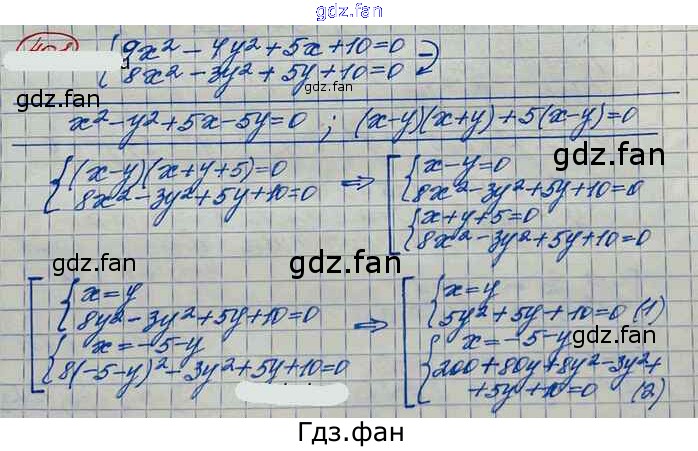 gdz.fan
408
{9x² - 4y² + 5x + 10 = 0
{8x² - 3y² + 5y + 10 = 0 -
gdz.fan gdz.fan
x² - y² + 5x - 5y = 0 ; (x-y)(x+y) + 5(x-y) = 0
gdz.fan
{(x-y)(x+y+5) = 0 ⇒ [{x-y = 0
{8x² - 3y² + 5y + 10 = 0 {8x² - 3y² + 5y + 10 = 0
{x+y+5 = 0
{8x² - 3y² + 5y + 10 = 0
gdz.fan gdz.fan
[{x = y [{x = y
{8y² - 3y² + 5y + 10 = 0 ⇒ {5y² + 5y + 10 = 0 (1)
{x = -5-y {x = -5-y
{8(-5-y)² - 3y² + 5y + 10 = 0 {200 + 80y + 8y² - 3y² +
+ 5y + 10 = 0 (2)
gdz.fan gdz.fan
Гдз.фан